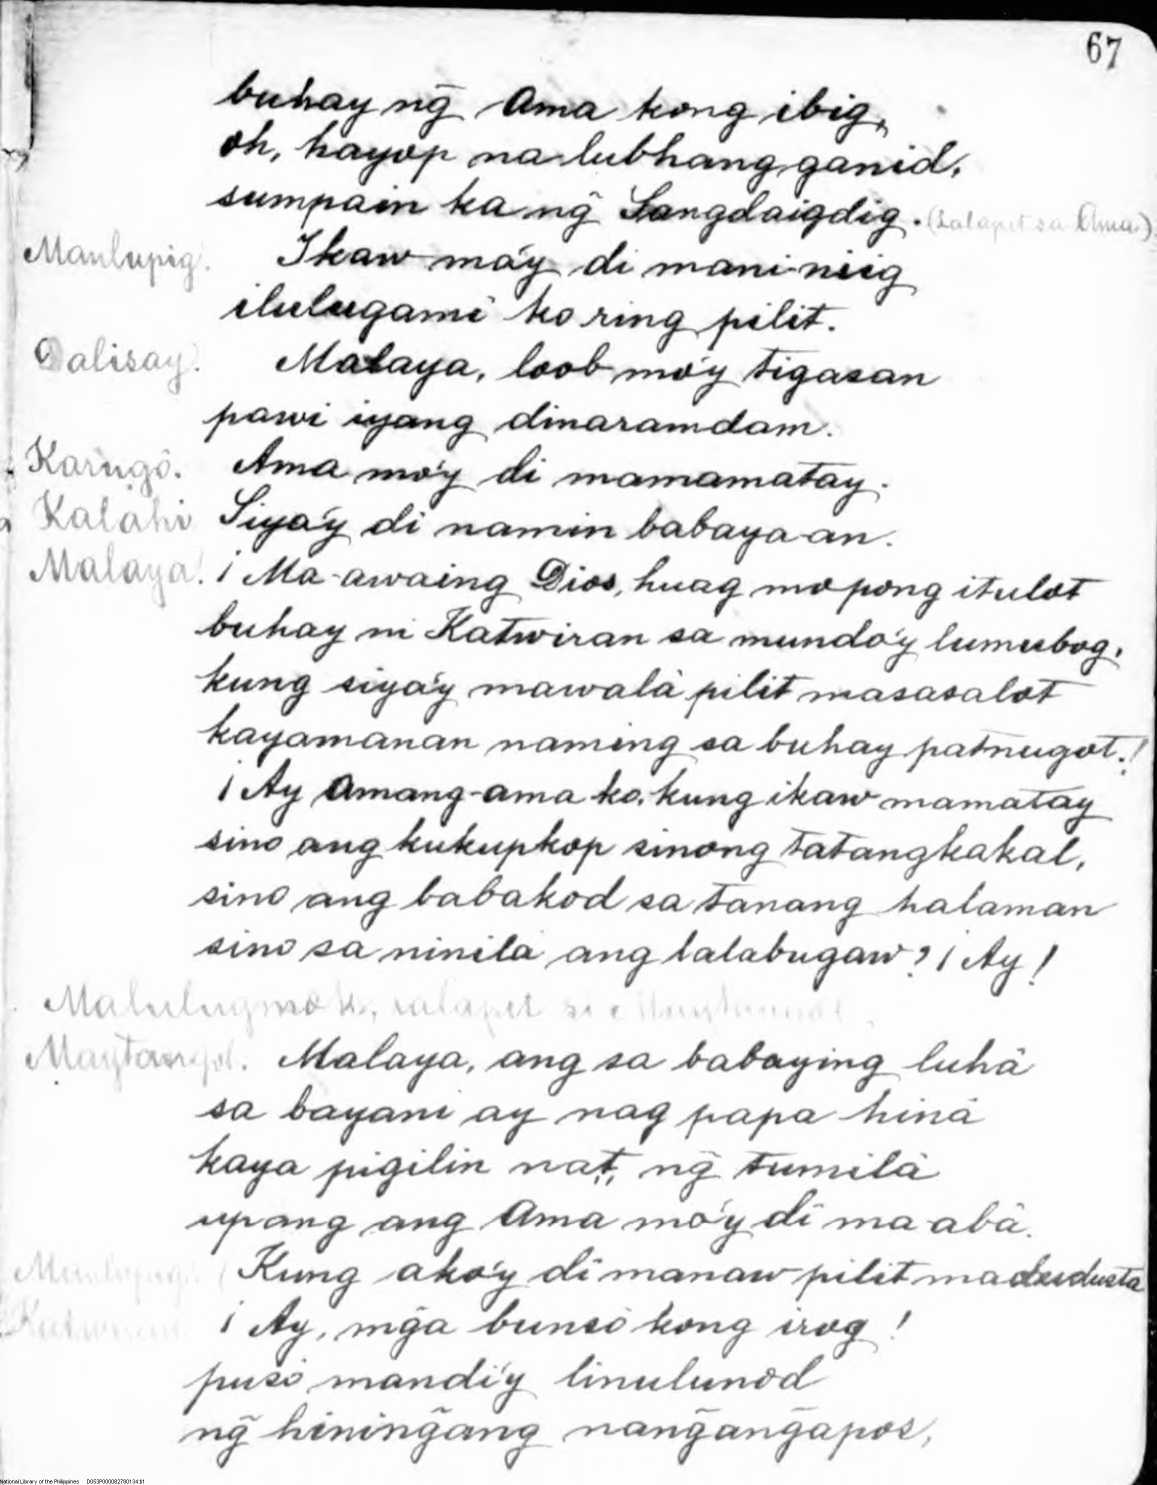 67
buhay ng̃ Ama kong ibig,
oh, hayop na lubhang ganid,
sumpain ka ng̃ Sangdaigdig. (Lalapit sa Ama)
Manlupig. Ikaw ma'y di mani-niig
ilulugami ko ring pilit.
Dalisay. Malaya, loob mo'y tigasan
pawi iyang dinaramdam.
Karugô. Ama mo'y di mamamatay.
Kalahi Siya'y di namin babaya-an.
Malaya. ¡Ma-awaing Dios, huag mo pong itulot
buhay ni Katwiran sa mundo'y lumubog,
kung siya'y mawalà pilit masasalot
kayamanan naming sa buhay patnugot.!
¡Ay Amang-ama ko, kung ikaw mamatay
sino ang kukupkop sinong tatangkakal,
sino ang babakod sa tanang halaman
sino sa ninila ang lalabugaw? ¡Ay!
Malulugmok, lalapit si
Magtanggol. Malaya, ang sa babaying luhà
sa bayani ay nag papa hinà
kaya pigilin na't, ng̃ tumilà
upang ang Ama mo'y di ma-abâ.
Manlupig. Kung ako'y di manaw pilit madudusta
¡Ay, mg̃a bunsò kong irog!
pusò mandi'y linulunod
ng̃ hining̃ang nang̃ang̃apos,
National Library of the Philippines